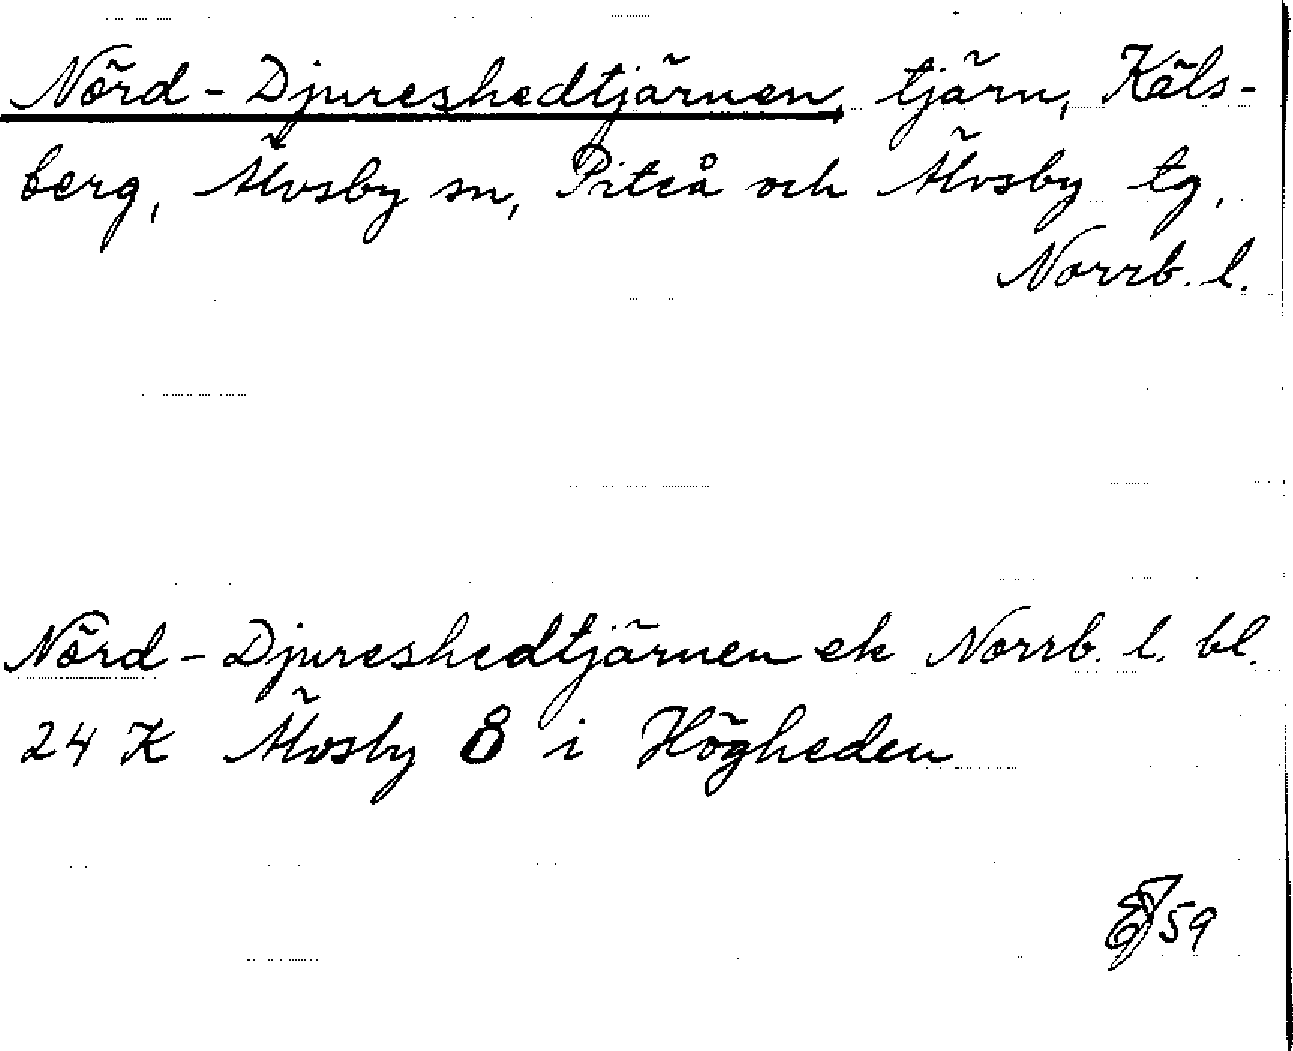 Nörd-Djureshedtjärnen, tjärn, Käls-
berg, Älvsby sn, Piteå och Älvsby tg,
Norrb. l.
Nörd-Djureshedtjärnen ek Norrb. l. bl.
24 K Älvsby 8 i Högheden
59